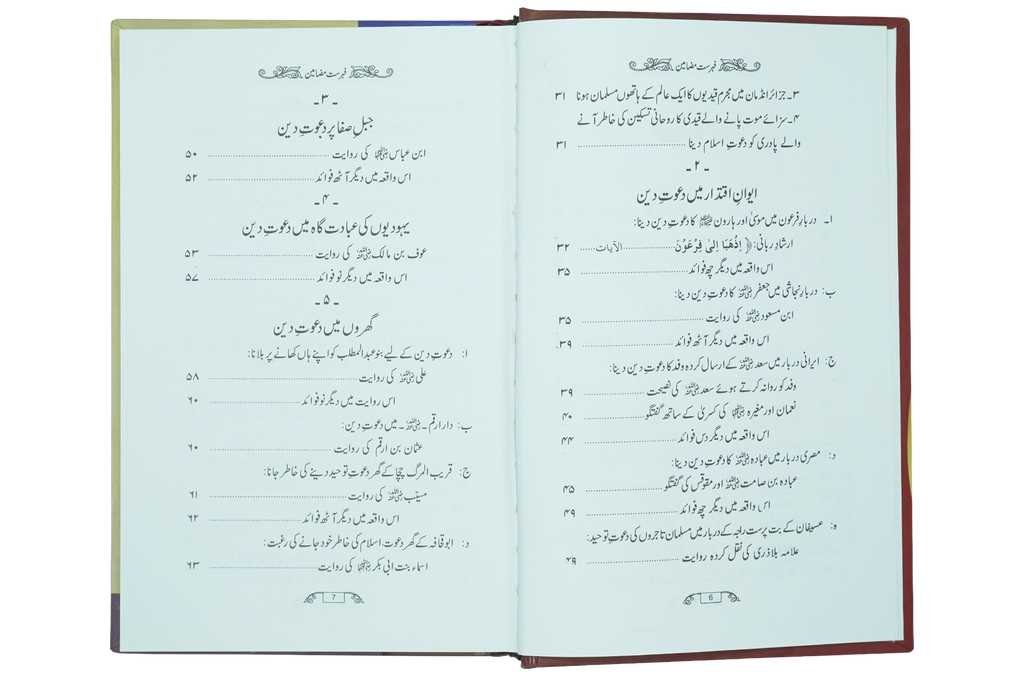 فہرست مضامین
۳۔ جزائر انڈمان میں مجرم قیدیوں کا ایک عالم کے ہاتھوں مسلمان ہونا ۳۱
۴۔ سزائے موت پانے والے قیدی کا روحانی تسکین کی خاطر آنے
والے پادری کو دعوتِ اسلام دینا ........ ۳۱
- ۲ -
ایوانِ اقتدار میں دعوتِ دین
ا۔ دربارِ فرعون میں موسیٰ اور ہارون کا دعوتِ دین دینا:
ارشادِ ربانی: ﴿ اِذْهَبَا اِلىٰ فِرْعَوْنَ ........ الآیات ........ ۳۲
اس واقعہ میں دیگر چھ فوائد ........ ۳۵
ب: دربارِ نجاشی میں جعفر رضی اللہ عنہ کا دعوتِ دین دینا:
ابن مسعود رضی اللہ عنہ کی روایت ........ ۳۵
اس واقعہ میں دیگر آٹھ فوائد ........ ۳۹
ج: ایرانی دربار میں سعد رضی اللہ عنہ کے ارسال کردہ وفد کا دعوتِ دین دینا:
وفد کو روانہ کرتے ہوئے سعد رضی اللہ عنہ کی نصیحت ........ ۳۹
نعمان اور مغیرہ رضی اللہ عنہما کی کسریٰ کے ساتھ گفتگو ........ ۴۰
اس واقعہ میں دیگر دس فوائد ........ ۴۴
د: مصری دربار میں عبادہ رضی اللہ عنہ کا دعوتِ دین دینا:
عبادہ بن صامت رضی اللہ عنہ اور مقوقس کی گفتگو ........ ۴۵
اس واقعہ میں دیگر چھ فوائد ........ ۴۹
ہ: عسیفان کے بت پرست راجہ کے دربار میں مسلمان تاجروں کی دعوتِ توحید:
علامہ بلاذری کی نقل کردہ روایت ........ ۴۹
6
فہرست مضامین
- ۳ -
جبلِ صفا پر دعوتِ دین
ابن عباس رضی اللہ عنہما کی روایت ........ ۵۰
اس واقعہ میں دیگر آٹھ فوائد ........ ۵۲
- ۴ -
یہودیوں کی عبادت گاہ میں دعوتِ دین
عوف بن مالک رضی اللہ عنہ کی روایت ........ ۵۳
اس واقعہ میں دیگر نو فوائد ........ ۵۷
- ۵ -
گھروں میں دعوتِ دین
ا: دعوتِ دین کے لیے بنو عبدالمطلب کو اپنے ہاں کھانے پر بلانا:
علی رضی اللہ عنہ کی روایت ........ ۵۸
اس روایت میں دیگر نو فوائد ........ ۶۰
ب: دار ارقم ۔ رضی اللہ عنہ ۔ میں دعوتِ دین:
عثمان بن ارقم کی روایت ........ ۶۰
ج: قریب المرگ چچا کے گھر دعوتِ توحید دینے کی خاطر جانا:
مسیّب رضی اللہ عنہ کی روایت ........ ۶۱
اس واقعہ میں دیگر آٹھ فوائد ........ ۶۲
د: ابوقحافہ کے گھر دعوت اسلام کی خاطر خود جانے کی رغبت:
اسماء بنت ابی بکر رضی اللہ عنہما کی روایت ........ ۶۳
7